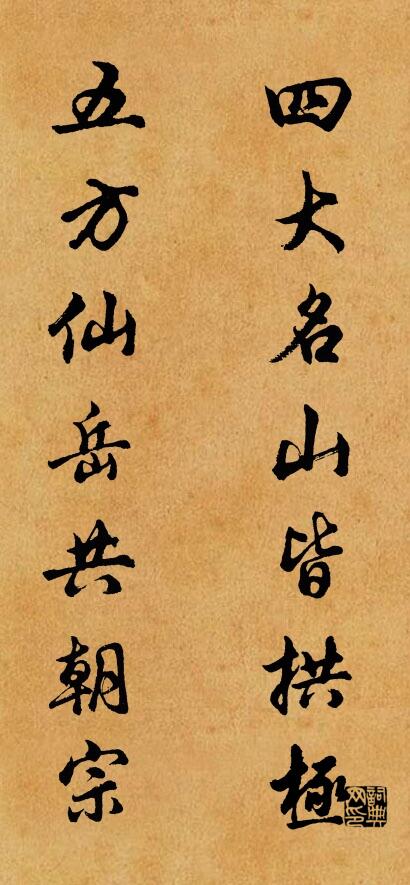 四大名山皆拱極
五方仙岳共朝宗
詞典网印